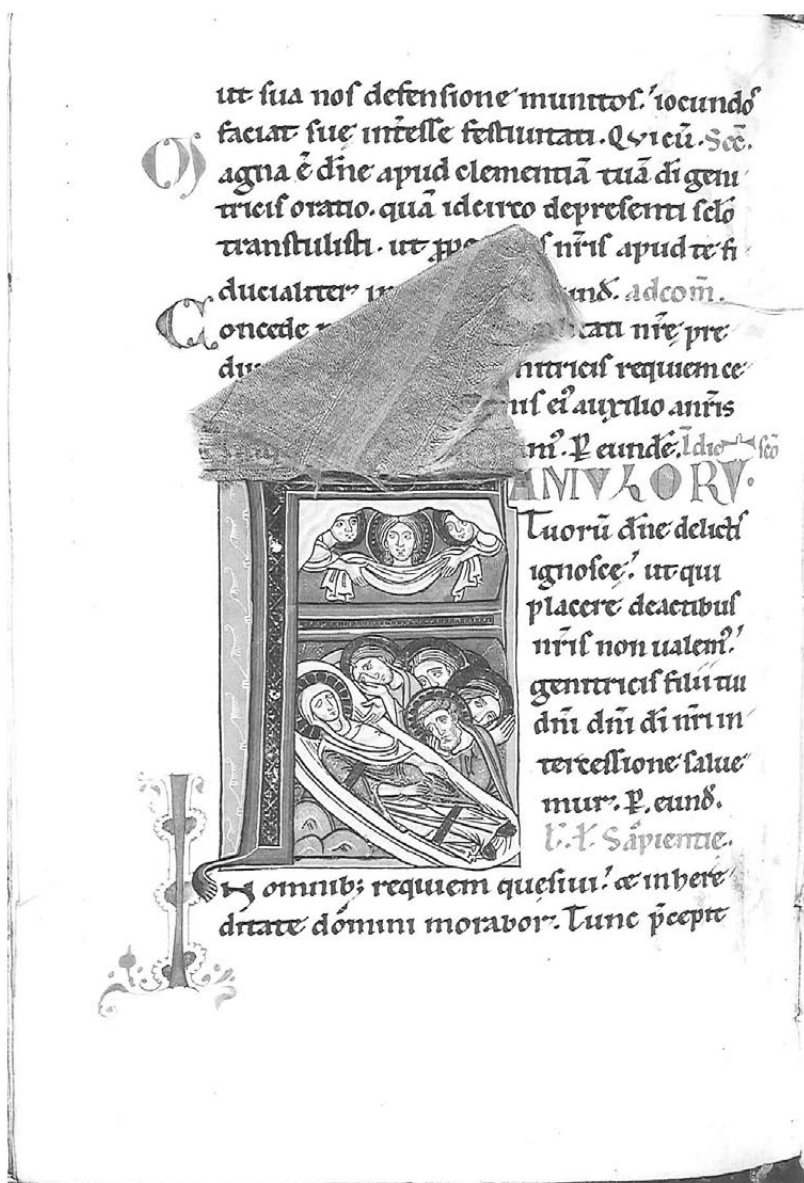 ut sua nos defensione munitos. iocundos
faciat suę int̄esse festiuitati. Qui cū. Sec̄.
Magna ē dn̄e apud clementiā tuā di geni
tricis oratio. quā idcirco de presenti sclō
transtulisti. ut nr̄is apud te fi
ducialiter eund. ad com̄.
Concede nr̄ę pre
nitricis requiem ce
ei9 auxilio a nr̄is
. P eundē.
FAMULORU.
Tuorū dn̄e delictis
ignosce. ut qui
placere de actibus
nr̄is non ualem9.
genitricis filii tui
dn̄i dn̄i di nr̄i in
tercessione salue
mur. P. eund.
Sapientie.
In omnib; requiem quesiui. & in here
ditate domini morabor. Tunc p̄cepit